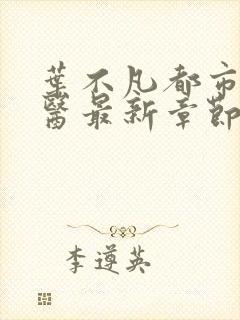 葉不凡都市
醫最新章節
李遵英